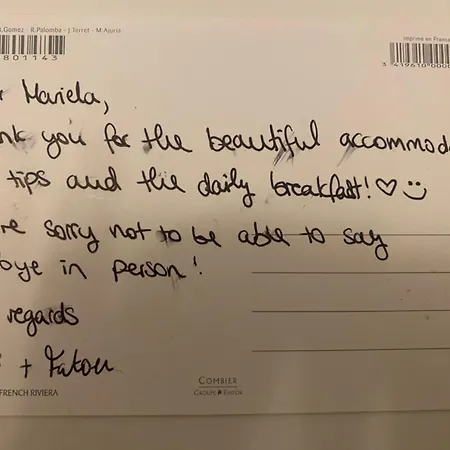 .Gomez - R.Palomba - J.Terret - M.Ajuria
801143
Imprimé en France
3 419610 0000
Mariela,
nk you for the beautiful accommoda
tips and the daily breakfast! ♡ :)
re sorry not to be able to say
bye in person!
regards
+ Fatou
FRENCH RIVIERA
COMBIER
GROUPE EDITOR